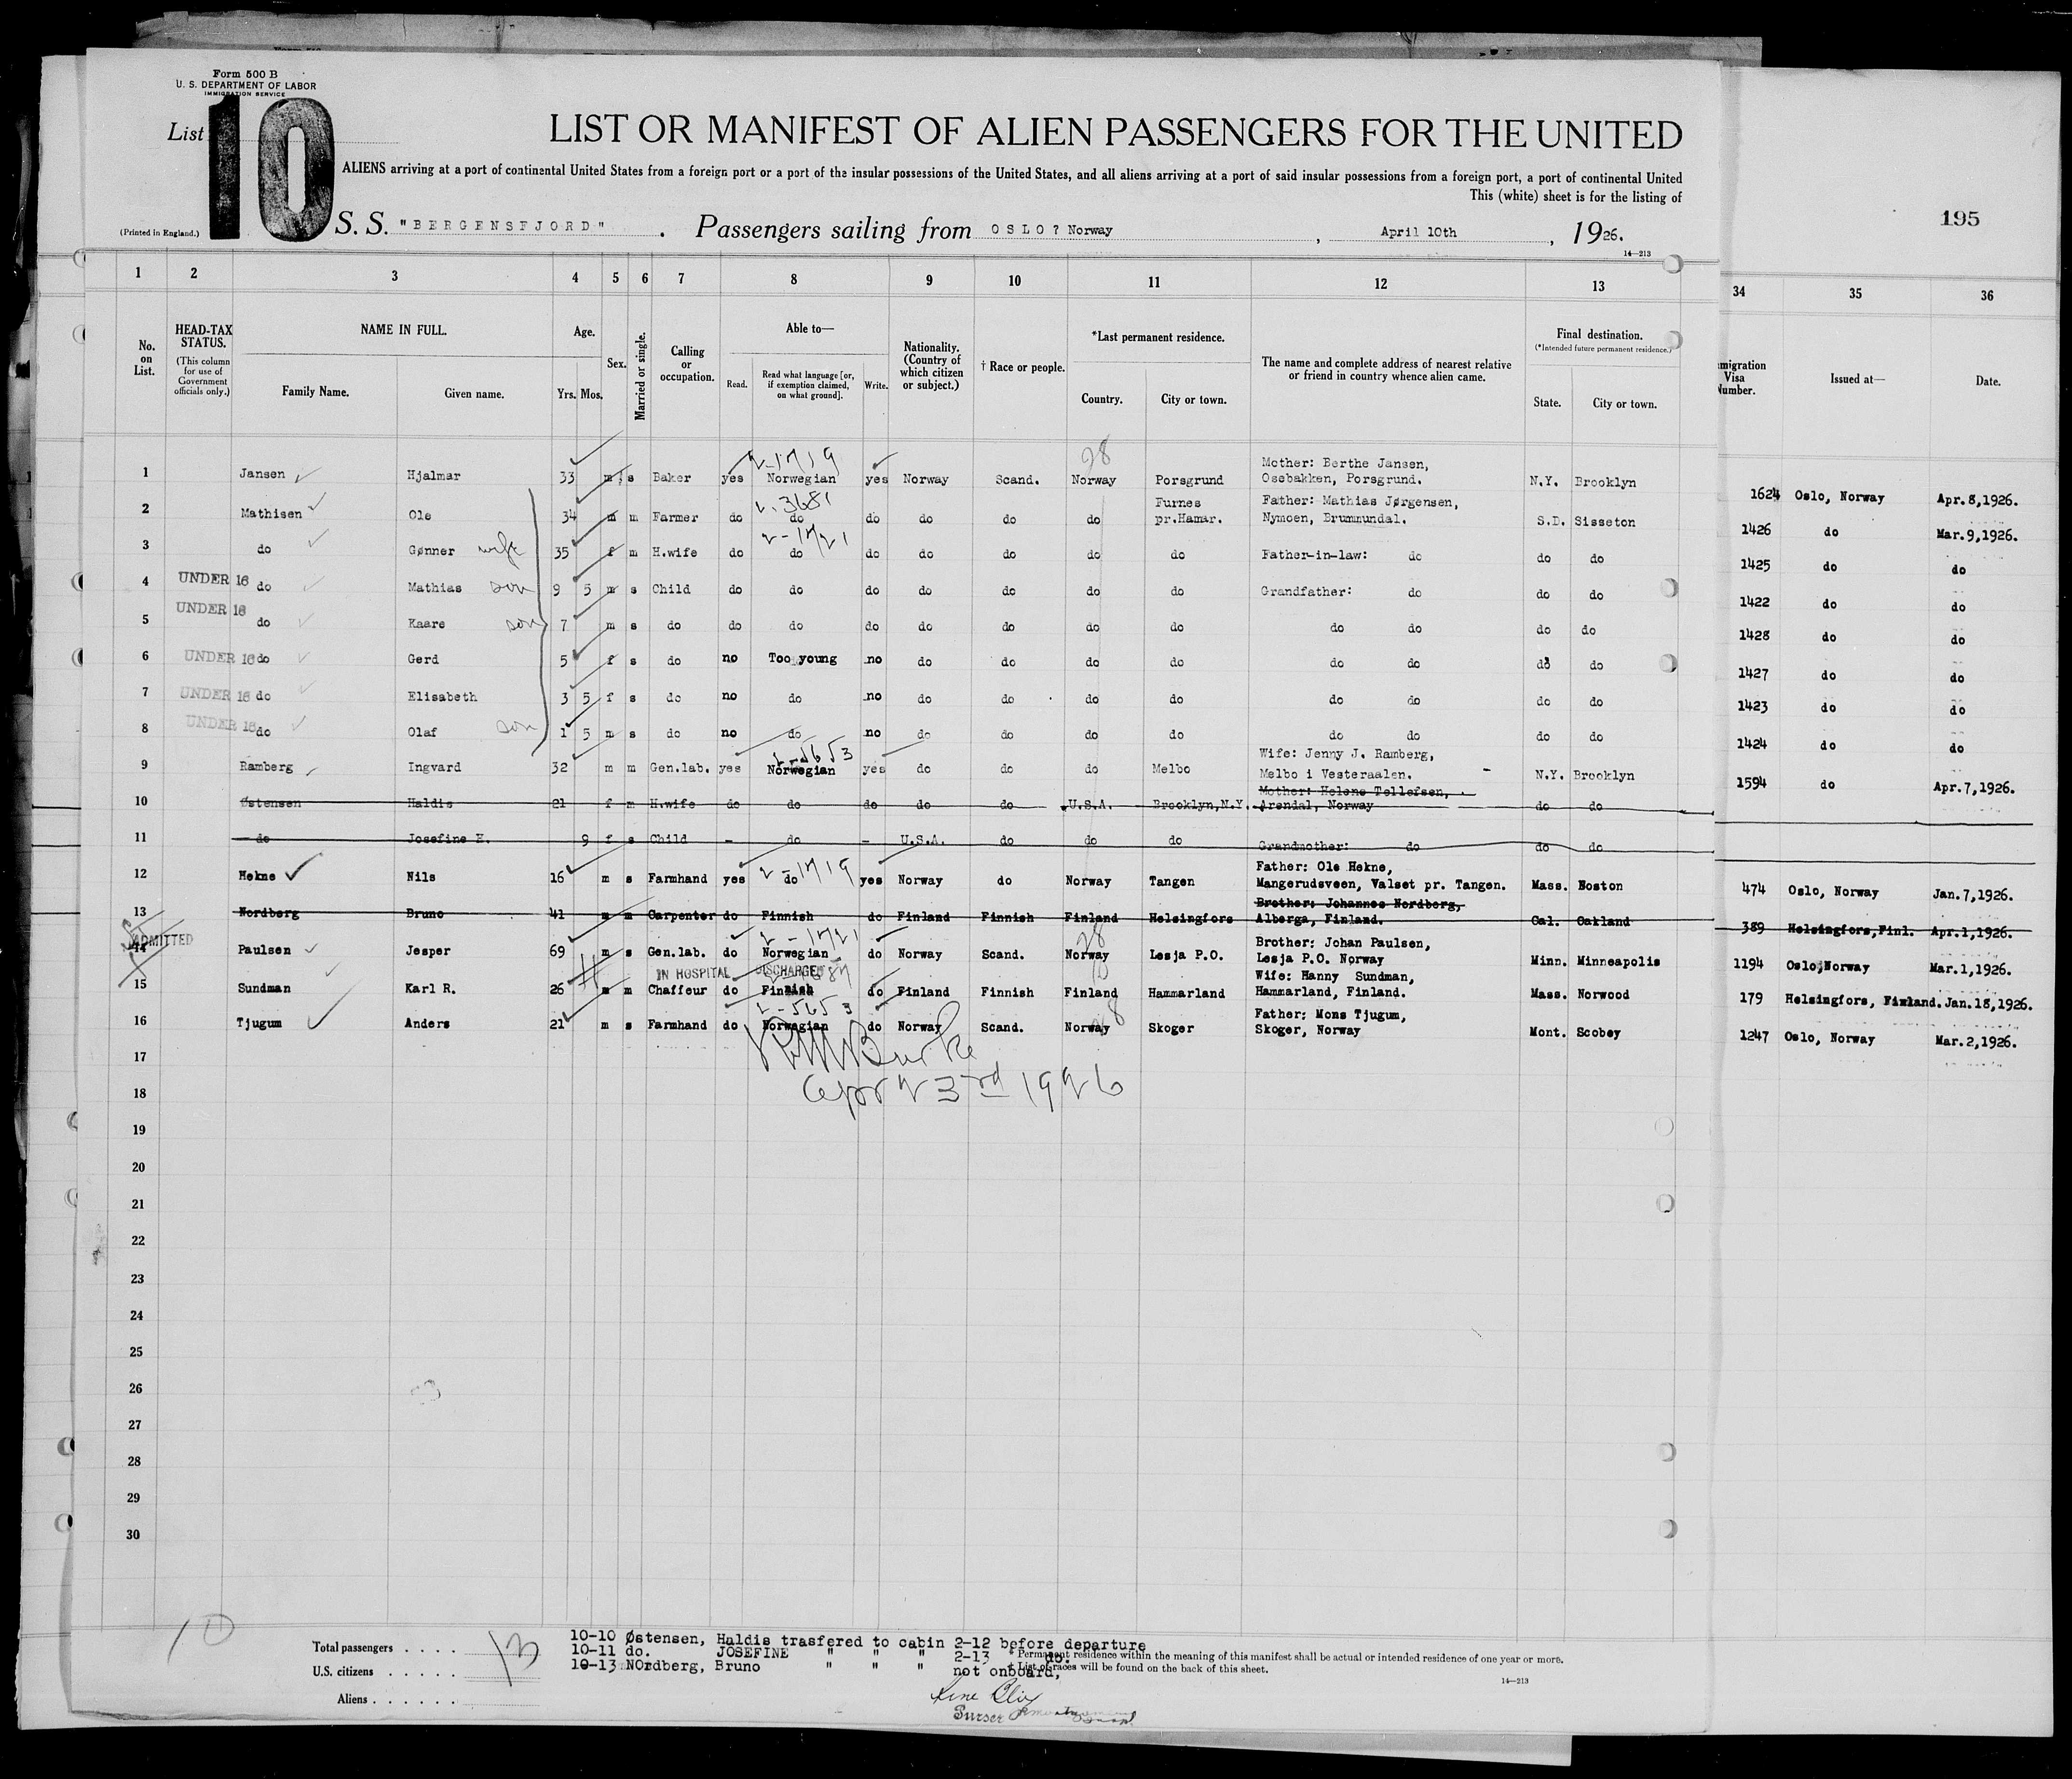 Form 500 B
U. S. DEPARTMENT OF LABOR
IMMIGRATION SERVICE
List 10
LIST OR MANIFEST OF ALIEN PASSENGERS FOR THE UNITED
ALIENS arriving at a port of continental United States from a foreign port or a port of the insular possessions of the United States, and all aliens arriving at a port of said insular possessions from a foreign port, a port of continental United
This (white) sheet is for the listing of
(Printed in England.)
S. S. "BERGENSFJORD" . Passengers sailing from OSLO? Norway , April 10th , 1926.
14—213
195
1 2 3 4 5 6 7 8 9 10 11 12 13 34 35 36
No. on List.
HEAD-TAX STATUS.
(This column for use of Government officials only.)
NAME IN FULL.
Family Name. Given name.
Age.
Yrs. Mos.
Sex.
Married or single.
Calling or occupation.
Able to—
Read. Read what language [or, if exemption claimed, on what ground]. Write.
Nationality. (Country of which citizen or subject.)
† Race or people.
*Last permanent residence.
Country. City or town.
The name and complete address of nearest relative or friend in country whence alien came.
Final destination.
(*Intended future permanent residence.)
State. City or town.
migration Visa Number.
Issued at—
Date.
2-1719 28
1 Jansen Hjalmar 33 m s Baker yes Norwegian yes Norway Scand. Norway Porsgrund Mother: Berthe Jansen, Osebakken, Porsgrund. N.Y. Brooklyn 1624 Oslo, Norway Apr.8,1926.
2-3681
2 Mathisen Ole 34 m m Farmer do do do do do do Furnes pr.Hamar. Father: Mathias Jørgensen, Nymoen, Brummundal. S.D. Sisseton 1426 do Mar.9,1926.
2-1721
3 do Gønner wife 35 f m H.wife do do do do do do do Father-in-law: do do do 1425 do do
4 UNDER 16 do Mathias son 9 5 m s Child do do do do do do do Grandfather: do do do 1422 do do
5 UNDER 16 do Kaare son 7 m s do do do do do do do do do do do do 1428 do do
6 UNDER 16 do Gerd 5 f s do no Too young no do do do do do do do do 1427 do do
7 UNDER 16 do Elisabeth 3 5 f s do no do no do do do do do do do do 1423 do do
8 UNDER 16 do Olaf son 1 5 m s do no do no do do do do do do do do 1424 do do
2-5653
9 Ramberg Ingvard 32 m m Gen.lab. yes Norwegian yes do do do Melbo Wife: Jenny J. Ramberg, Melbo i Vesteraalen. N.Y. Brooklyn 1594 do Apr.7,1926.
10 Østensen Haldis 21 f m H.wife do do do do do U.S.A. Brooklyn,N.Y. Mother: Helene Tellefsen, Arendal, Norway do do
11 do Josefine H. 9 f s Child - do - U.S.A. do do do Grandmother: do do do
2-1719
12 Hekne Nils 16 m s Farmhand yes do yes Norway do Norway Tangen Father: Ole Hekne, Mangerudsveen, Valset pr. Tangen. Mass. Boston 474 Oslo, Norway Jan.7,1926.
13 Nordberg Bruno 41 m m Carpenter do Finnish do Finland Finnish Finland Helsingfors Brother: Johannes Nordberg, Alberga, Finland. Cal. Oakland 389 Helsingfors,Finl. Apr.1,1926.
ADMITTED 2-1721 28
14 Paulsen Jesper 69 m s Gen.lab. do Norwegian do Norway Scand. Norway Lesja P.O. Brother: Johan Paulsen, Lesja P.O. Norway Minn. Minneapolis 1194 Oslo,Norway Mar.1,1926.
IN HOSPITAL DISCHARGED
15 Sundman Karl R. 26 m m Chaffeur do Finnish do Finland Finnish Finland Hammarland Wife: Hanny Sundman, Hammarland, Finland. Mass. Norwood 179 Helsingfors, Finland. Jan.18,1926.
2-5653 28
16 Tjugum Anders 21 m s Farmhand do Norwegian do Norway Scand. Norway Skoger Father: Mons Tjugum, Skoger, Norway Mont. Scobey 1247 Oslo, Norway Mar.2,1926.
17
Burke
18
Apr 23rd 1926
19
20
21
22
23
24
25
26
27
28
29
30
10
Total passengers . . . . 13
U.S. citizens . . . . .
Aliens . . . . . .
10-10 Østensen, Haldis trasfered to cabin 2-12 before departure
10-11 do. JOSEFINE " " " 2-13 do.
10-13 NOrdberg, Bruno " " " not onboard,
* Permanent residence within the meaning of this manifest shall be actual or intended residence of one year or more.
† List of races will be found on the back of this sheet.
14—213
Purser